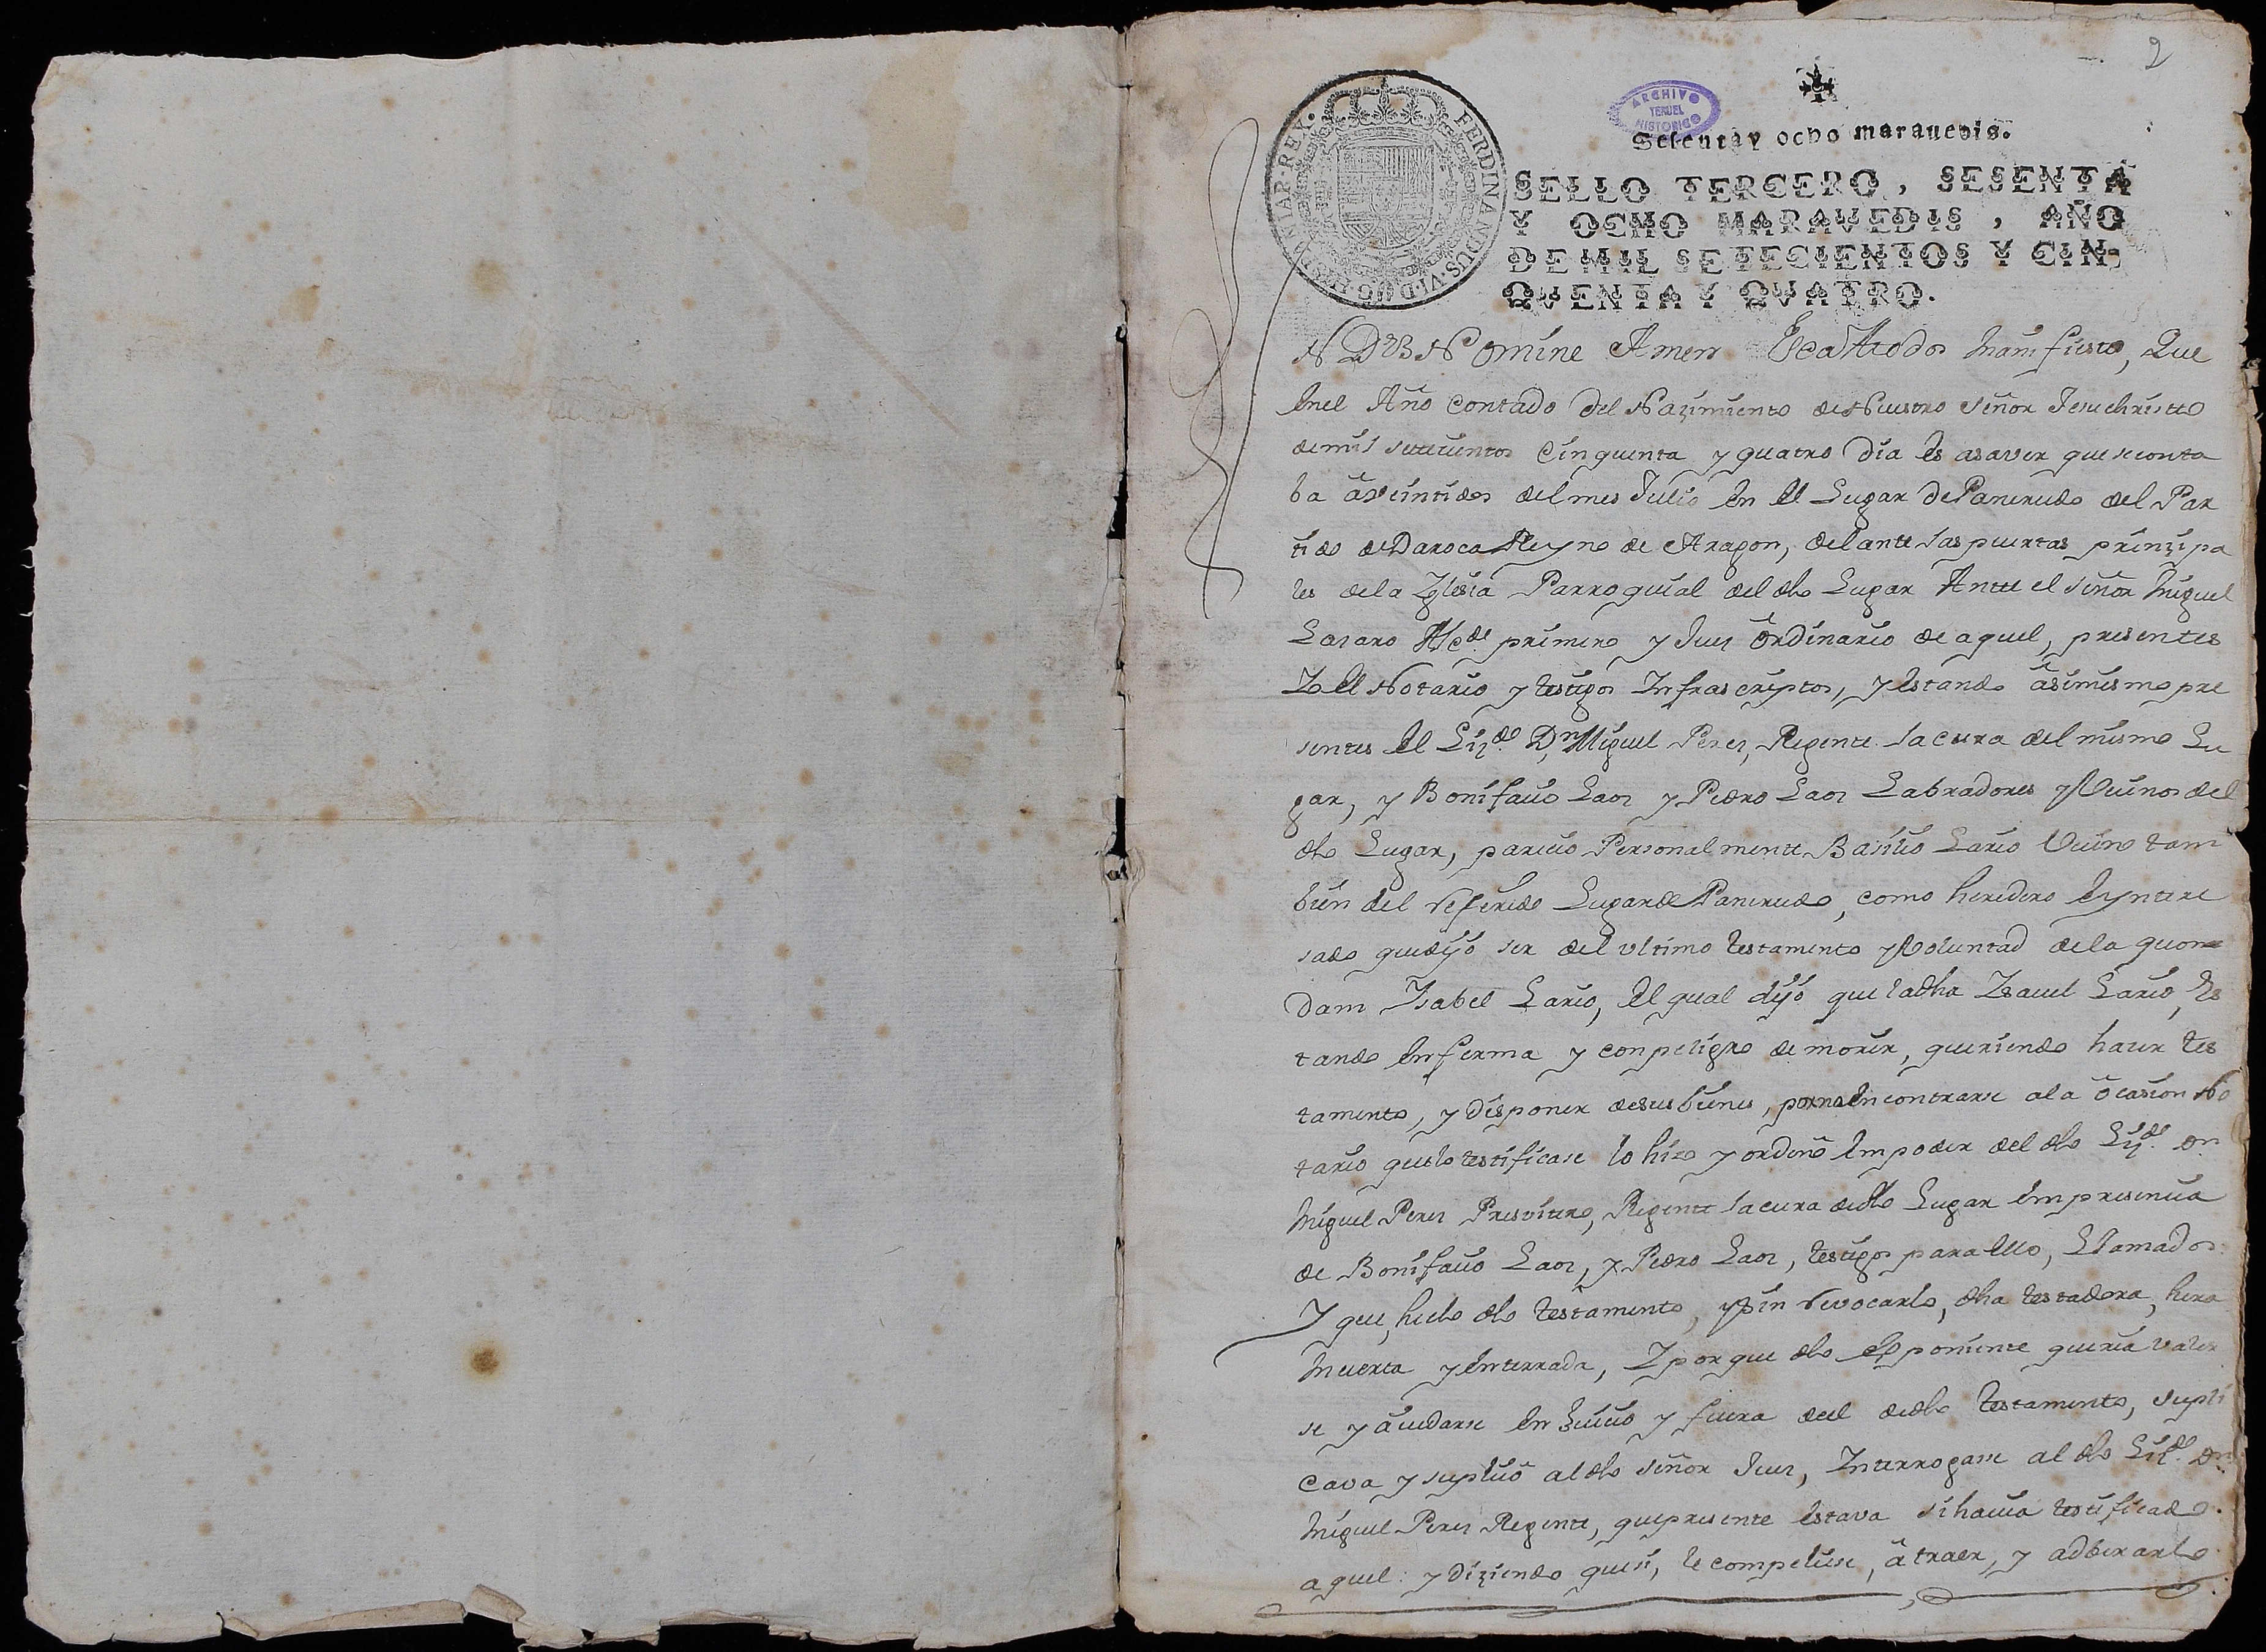 2
ARCHIVO
TERUEL
HISTORICO
Sesenta y ocho marauedis.
FERDINANDUS·VI·D·G·HISPANIAR·REX·
SELLO TERCERO, SESENTA
Y OCHO MARAVEDIS, AÑO
DE MIL SETECIENTOS Y CIN-
QVENTA Y QVATRO.
N Dei Nomine Amen Sea Atodos manifiesto, Que
enel Año contado del Nazimiento de Nuestro Señor Jesuchristto
de mil setecientos Cinquenta y quatro dia es asaver que se conta
ba â veintidos del mes Julio en el Lugar de Pancrudo del Par
tido de Daroca Reyno de Aragon, delante las puertas prinzipa
les dela Yglesia Parroquial del dho Lugar Ante el señor Miguel
Lazaro Alcde. primero y Juez ôrdinario de aquel, presentes
Yo el Notario y testigos Infrascriptos, y estando âsimismo pre
sentes el Lizdo. Dn. Miguel Perez, Regente la cura del mismo Lu
gar, y Bonifacio Laoz y Pedro Laoz Labradores y Vecinos del
dho Lugar, parecio Personalmente Basilio Lario Vecino tam
bien del referido Lugar de Pancrudo, como heredero e yntere
sado que dijo ser del ultimo testamento y Voluntad dela quon
dam Ysabel Lario, el qual dijo que la dha Ysavel Lario, es
tando enferma y con peligro de morir, queriendo hacer tes
tamento, y disponer de sus bienes, por no encontrarse ala ôcasion No
tario que lo testificase lo hizo y ordenô em poder del dho Lizdo. Dn.
Miguel Perez Presvitero, Regente la cura de dho Lugar em presencia
de Bonifacio Laoz, y Pedro Laoz, testigos para ello, Llamados
Y que, hecho dho testamento, y sin revocarlo, dha testadora, hera
muerta y enterrada, Y por que dho exponiente queria valer
se y âiudarse en Juicio y fuera del de dho testamento, supli
cava y suplicô al dho señor Juez, Interrogase al dho Lizdo. Dn.
Miguel Perez Regente, que presente estava si havia testificado
aquel: y diziendo que si, le compeliese, â traer, y adberarlo